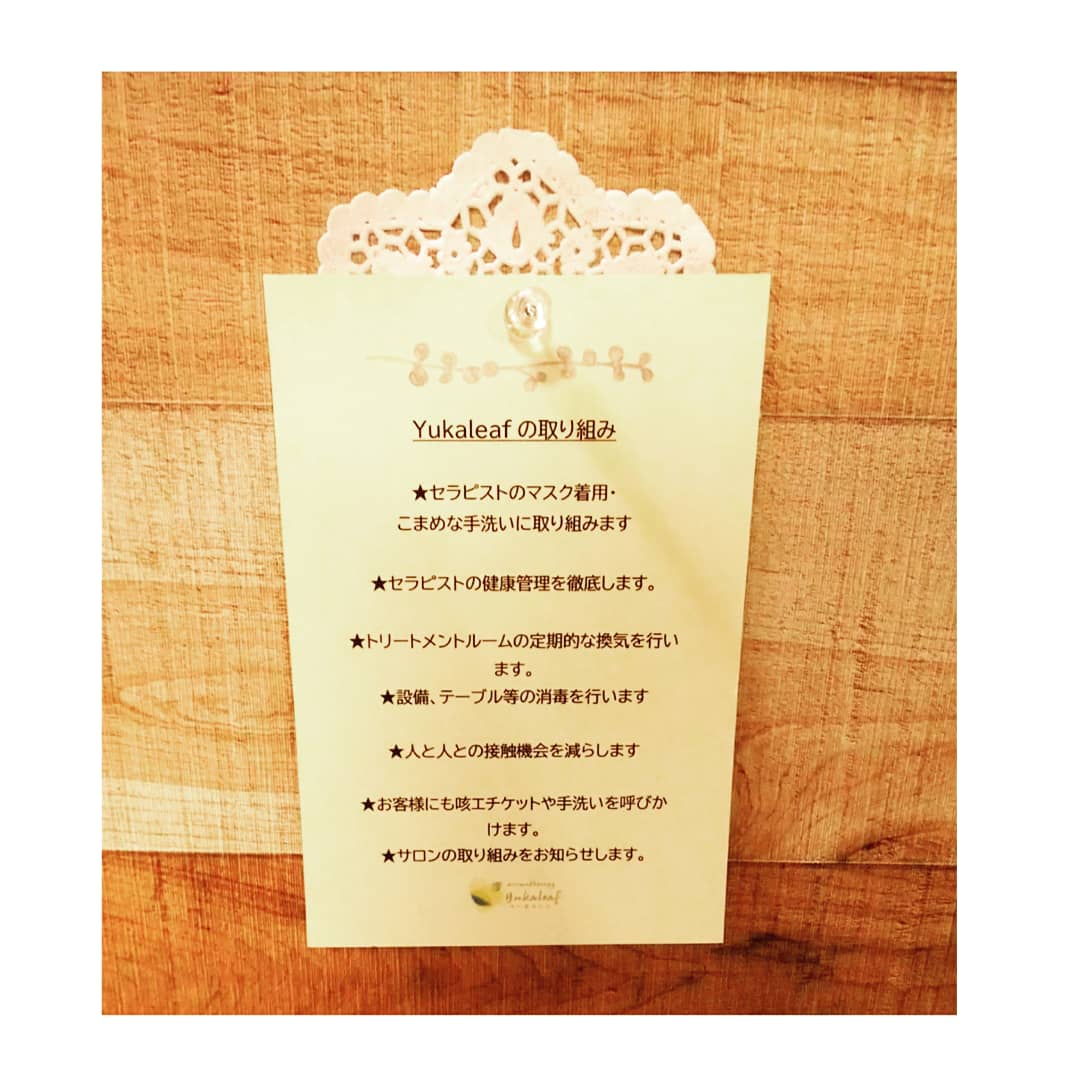 Yukaleaf の取り組み
★セラピストのマスク着用・
こまめな手洗いに取り組みます
★セラピストの健康管理を徹底します。
★トリートメントルームの定期的な換気を行い
ます。
★設備、テーブル等の消毒を行います
★人と人との接触機会を減らします
★お客様にも咳エチケットや手洗いを呼びか
けます。
★サロンの取り組みをお知らせします。
aromatherapy
Yukaleaf